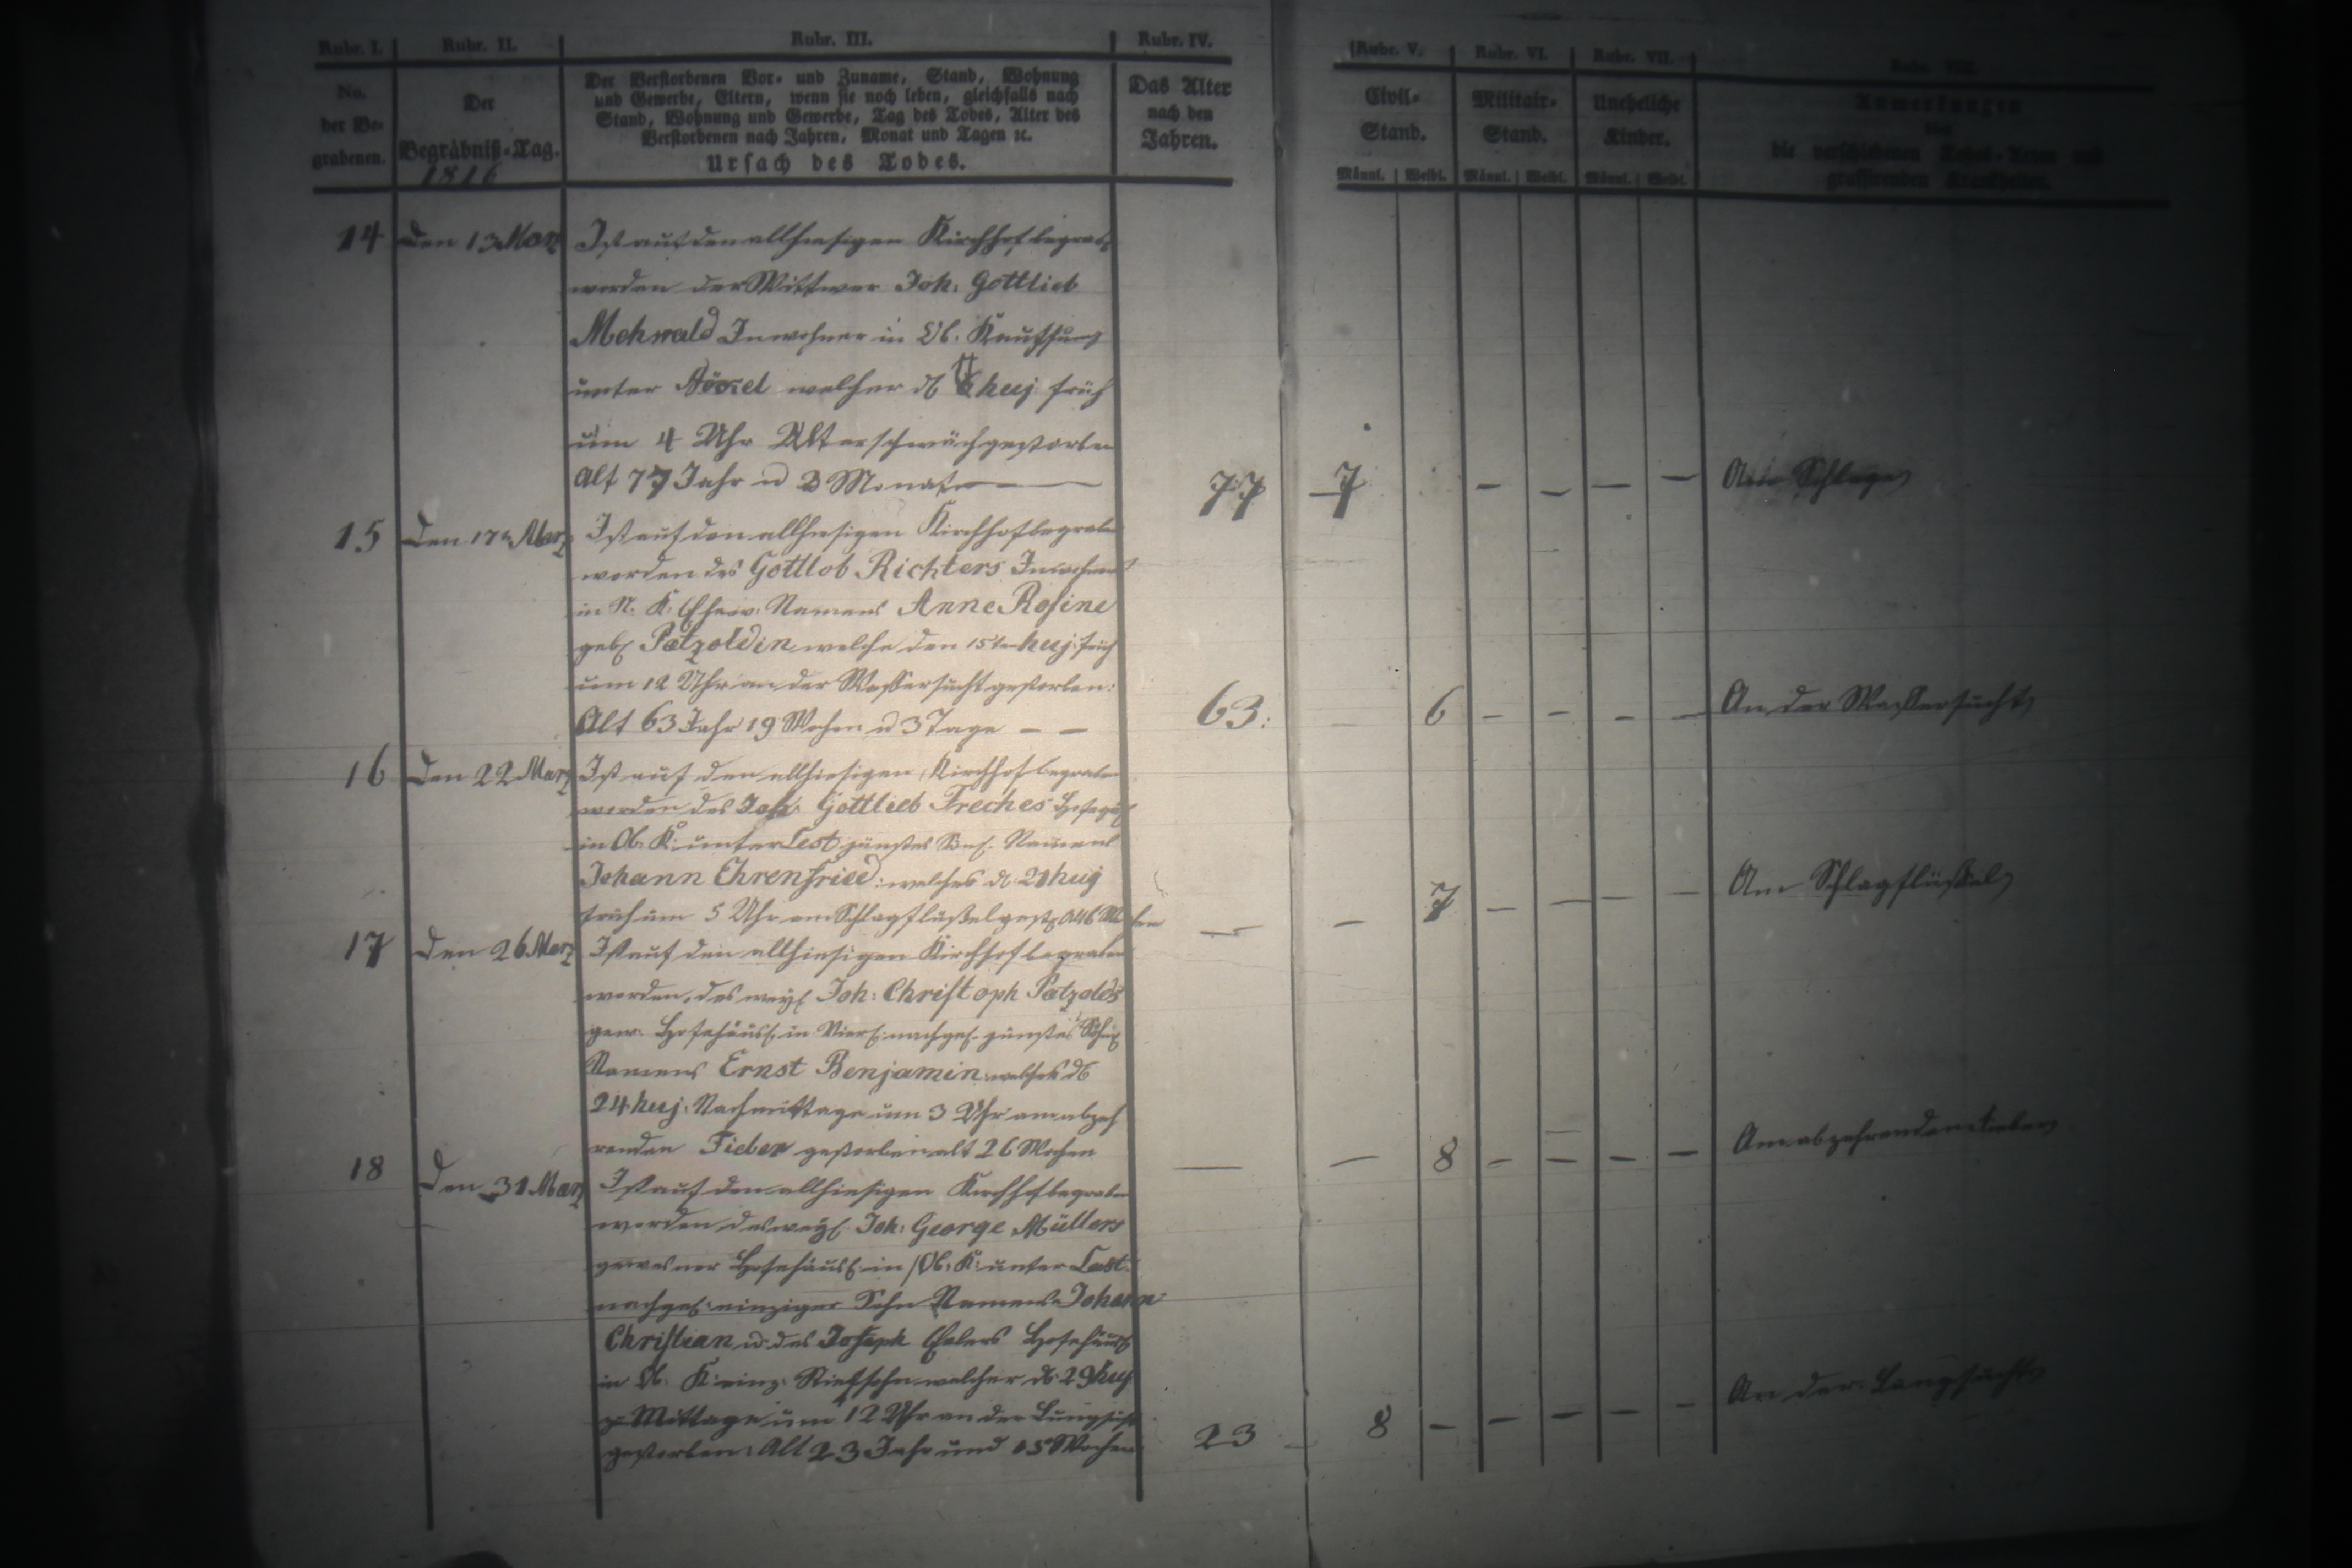 Rubr. I. Rubr. II. Rubr. III. Rubr. IV. Rubr. V. Rubr. VI. Rubr. VII.
No. der Begrabenen.
Der Begräbniß-Tag.
1816
Der Verstorbenen Vor- und Zuname, Stand, Wohnung
und Gewerbe, Eltern, wenn sie noch leben, gleichfalls nach
Stand, Wohnung und Gewerbe, Tag des Todes, Alter des
Verstorbenen nach Jahren, Monat und Tagen ꝛc.
Ursach des Todes.
Das Alter
nach den
Jahren.
Civil-
Stand.
Militair-
Stand.
Uneheliche
Kinder.
Anmerkungen
die verschiedenen Todes-Arten und
grassirenden Krankheiten.
Männl. Weibl. Männl. Weibl. Männl. Weibl.
14 Den 13 Marz Ist auf den allhiesigen Kirchhof begrab
worden der Wittwer Joh: Gottlieb
Mehwald Inwohner in Ob. Kauffung
unter welcher d huj früh
um 4 Uhr Alterschwäch gestorben
Alt 77 Jahr u Monate 77 7 – – – – Schlage
15 Den 17 Marz Ist auf den allhiesigen Kirchhof begraben
worden des Gottlob Richters Inwohner
in N. K. Ehew. Namens Anne Rosine
geb Pätzoldin welche den 15ten huj: früh
um 12 Uhr an der Wassersucht gestorben:
Alt 63 Jahr 19 Wochen u 3 Tage – – 63: – 6 – – – – An der Wassersucht
16 Den 22 Marz Ist auf den allhiesigen Kirchhof begraben
worden des Joh: Gottlieb Freches
in Ob. K. unter Lest jüngstes Namens
Johann Ehrenfried: welches d. 21 huj
früh um 5 Uhr am Schlagflüßel gest — – 7 – – – – Am Schlagflüßel
17 Den 26 Marz Ist auf den allhiesigen Kirchhof begraben
worden, des weyl Joh: Christoph Patzolds
gew. Hofehäusl. in nachgel. jünstes
Namens Ernst Benjamin welches d
24 huj: Nachmittage um 3 Uhr am abzeh
renden Fieber gestorben alt 26 Wochen — – 8 – – – – Am abzehrenden Fieber
18 Den 31 Marz Ist auf den allhiesigen Kirchhof begraben
worden des weyl. Joh: George Müllers
gewesner Hofehäusl. in Ob. K: unter Lest:
nachgel: einziger Sohn Namens Johann
Christian u des Joseph Hofehäusl
in Ob. K: einz. Stiefsohn welcher d. 29 huj
z Mittage um 12 Uhr an der Lungsucht
gestorben: Alt 23 Jahr und 15 Wochen 23 8 – – – – – An der Lungsucht